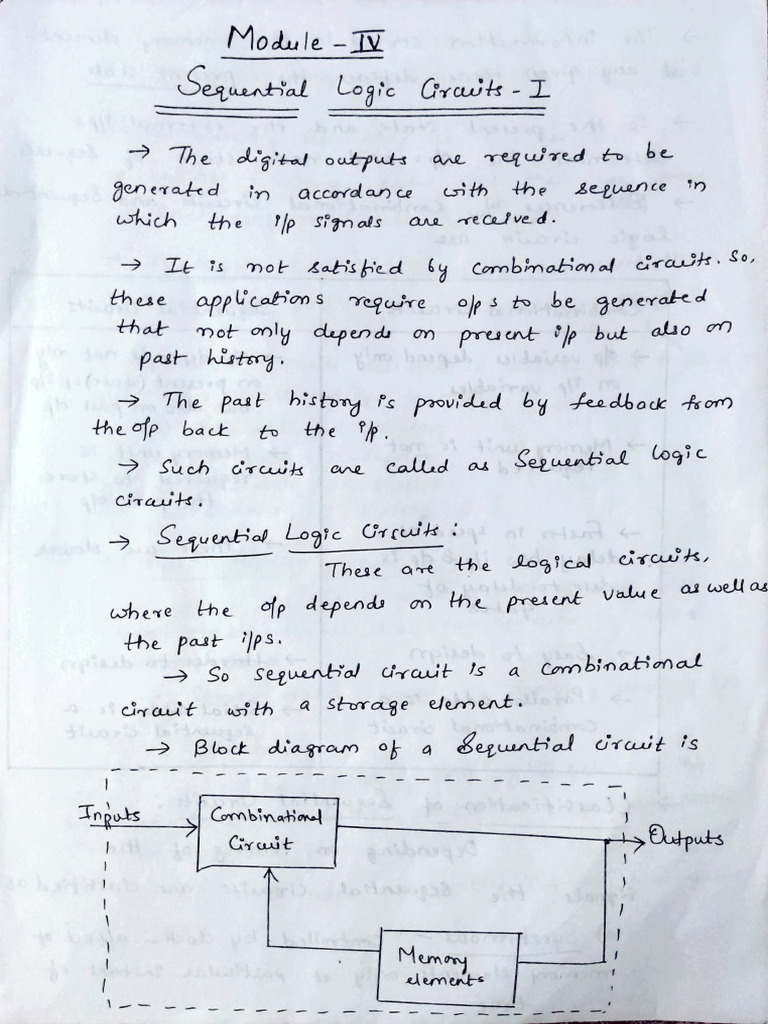 Module - IV
Sequential Logic Circuits - I
→ The digital outputs are required to be
generated in accordance with the sequence in
which the i/p signals are received.
→ It is not satisfied by combinational circuits. So,
these applications require o/p s to be generated
that not only depends on present i/p but also on
past history.
→ The past history is provided by feedback from
the o/p back to the i/p.
→ Such circuits are called as Sequential logic
circuits.
→ Sequential Logic Circuits :
These are the logical circuits,
where the o/p depends on the present value as well as
the past i/ps.
→ So sequential circuit is a combinational
circuit with a storage element.
→ Block diagram of a Sequential circuit is
Inputs
Combinational
Circuit
Outputs
Memory
elements